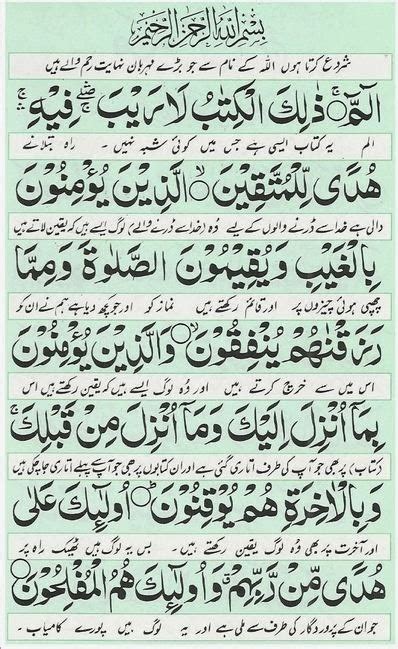 بِسْمِ اللهِ الرَّحْمٰنِ الرَّحِيْمِ
شروع کرتا ہوں اللہ کے نام سے جو بڑے مہربان نہایت رحم والے ہیں
الٓمّٓ ۚ ذٰلِكَ الْكِتٰبُ لَا رَيْبَ ۛۖ فِيْهِ ۛۚ
الم یہ کتاب ایسی ہے جس میں کوئی شبہ نہیں ۔ راہ بتلانے
هُدًى لِّلْمُتَّقِيْنَ ۙ الَّذِيْنَ يُؤْمِنُوْنَ
والی ہے خدا سے ڈرنے والوں کے لیے وُہ (خدا سے ڈرنے والے) لوگ ایسے ہیں کہ یقین لاتے ہیں
بِالْغَيْبِ وَيُقِيْمُوْنَ الصَّلٰوةَ وَمِمَّا
چھپی ہوئی چیزوں پر اور قائم رکھتے ہیں نماز کو اور جو کچھ دیا ہے ہم نے ان کو
رَزَقْنٰهُمْ يُنْفِقُوْنَ ۙ وَالَّذِيْنَ يُؤْمِنُوْنَ
اس میں سے خرچ کرتے ہیں اور وُہ لوگ ایسے ہیں کہ یقین رکھتے ہیں اس
بِمَآ اُنْزِلَ اِلَيْكَ وَمَآ اُنْزِلَ مِنْ قَبْلِكَ ۚ
(کتاب) پر بھی جو آپ کی طرف اتاری گئی ہے اور ان کتابوں پر بھی جو آپ سے پہلے اتاری جا چکی ہیں
وَبِالْاٰخِرَةِ هُمْ يُوْقِنُوْنَ ۗ اُولٰٓئِكَ عَلٰى
اور آخرت پر بھی وُہ لوگ یقین رکھتے ہیں ۔ بس یہ لوگ ہیں ٹھیک راہ پر
هُدًى مِّنْ رَّبِّهِمْ ۙ وَاُولٰٓئِكَ هُمُ الْمُفْلِحُوْنَ ۝
جو ان کے پروردگار کی طرف سے ملی ہے اور یہ لوگ ہیں پورے کامیاب ۔